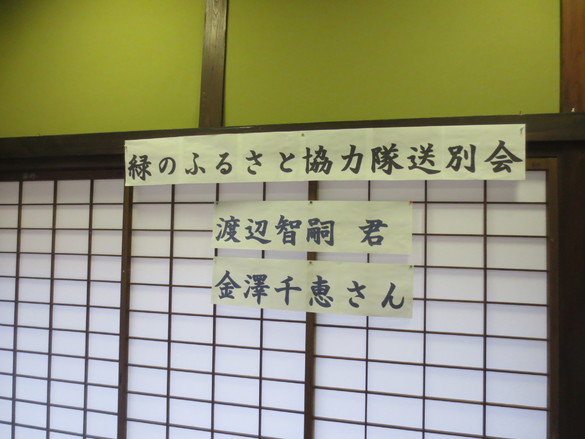 緑のふるさと協力隊送別会
渡辺智嗣 君
金澤千恵さん